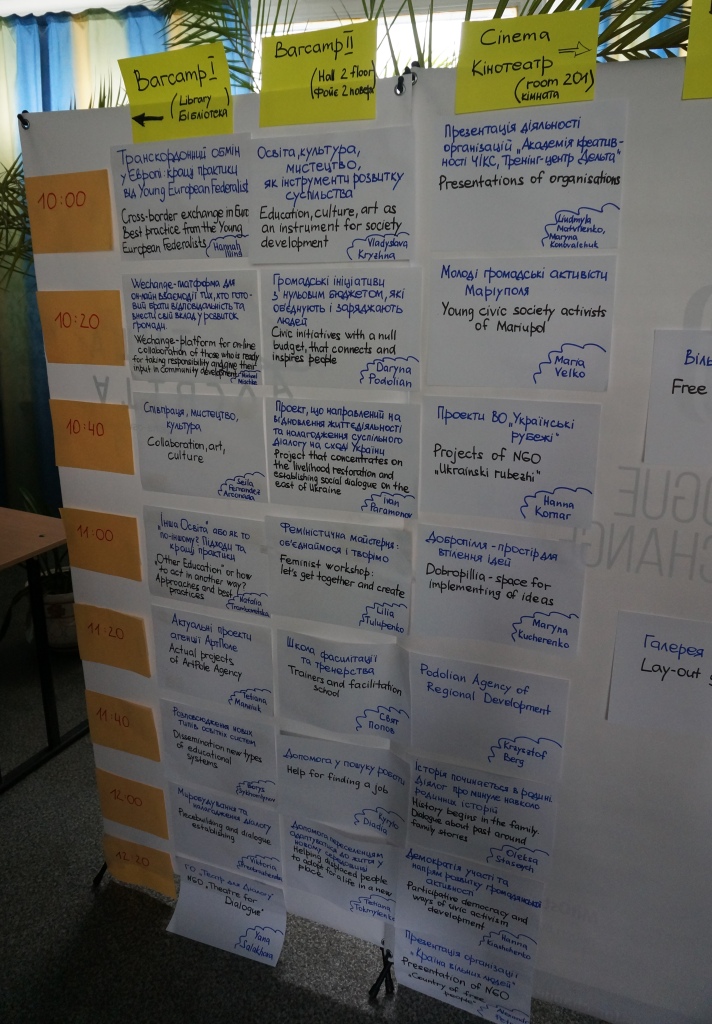 Barcamp I
(Library
Бібліотека)
Barcamp II
(Hall 2 floor
Фойє 2 поверх)
Cinema
Кінотеатр
(room 201)
кімната
10:00
Транскордонний обмін
у Європі: кращі практики
від Young European Federalist
Cross-border exchange in Euro
Best practice from the Young
European Federalists
Hannah
Освіта, культура,
мистецтво,
як інструменти розвитку
суспільства
Education, culture, art as
an instrument for society
development
Vladyslava
Kryzhna
Презентація діяльності
організацій „Академія креатив-
ності ЧІКС, Тренінг-центр Дельта"
Presentations of organisations
Liudmyla
Matvfienko,
Maryna
Konovalchuk
10:20
Wechange-платформа для
онлайн взаємодії тих, хто гото-
вий брати відповідальність та
внести свій вклад у розвиток
громади.
Wechange-platform for on-line
collaboration of those who is ready
for taking responsibility and give their
input in Community development
Громадські ініціативи
з нульовим бюджетом, які
об'єднують і заряджають
людей
Civic initiatives with a null
budget, that connects and
inspires people
Daryna
Podolian
Молоді громадські активісти
Маріуполя
Young civic society activists
of Mariupol
Maria
Velko
10:40
Співпраця, мистецтво,
культура
Collaboration, art,
culture
Seila
Fernandez
Arconada
Проект, що направлений на
відновлення життєдіяльності
та налагодження суспільного
діалогу на сході України
Project that concentrates on
the livelihood restoration and
establishing social dialogue on the
east of Ukraine
Ivan
Paramonov
Проекти ВО „Українські
рубежі"
Projects of NGO
„Ukrainski rubezhi"
Hanna
Komar
11:00
„Інша Освіта" або як то
по-іншому? Підходи та
кращі практики
„Other Education" or how
to act in another way?
Approaches and best
practices
Natalia
Trambovetska
Феміністична майстерня:
об'єднаймося і творімо
Feminist workshop:
let's get together and create
Lilia
Tulupenko
Добропілля - простір для
втілення ідей
Dobropillia - space for
implementing of ideas
Maryna
Kucherenko
11:20
Актуальні проекти
агенції АртПоле
Actual projects
of ArtPole Agency
Tetiana
Школа фасилітації
та тренерства
Trainers and facilitation
school
Свят
Попов
Podolian Agency of
Regional Development
Krzysztof
Berg
11:40
Розповсюдження нових
типів освітніх систем
Dissemination new types
of educational
systems
Borys
Допомога у пошуку роботи
Help for finding a job
Kyrylo
Diadia
Історія починається в родині
Діалог про минуле навколо
родинних історій
History begins in the family
Dialogue about past around
family stories
Oleksa
Stasevych
12:00
Миробудування та
налагодження діалогу
Piecebuilding and dialogue
establishing
Viktoria
Допомога переселенцям
адаптуватися до життя у
новому середовищі
Helping displaced people
to adopt for a life in a new
place.
Tetiana
Tokmylenko
Демократія участі та
напрям розвитку громадянської
активності
Participative democracy and
ways of civic activism
development
Hanna
12:20
ГО „Театр для Діалогу"
NGO „Theatre for
Dialogue"
Yana
Salakhova
Презентація організації
„Країна вільних людей"
Presentation of NGO
„Country of free
people"
Віль
Free
Галерея
Lay-out
OGUE
CHANGE